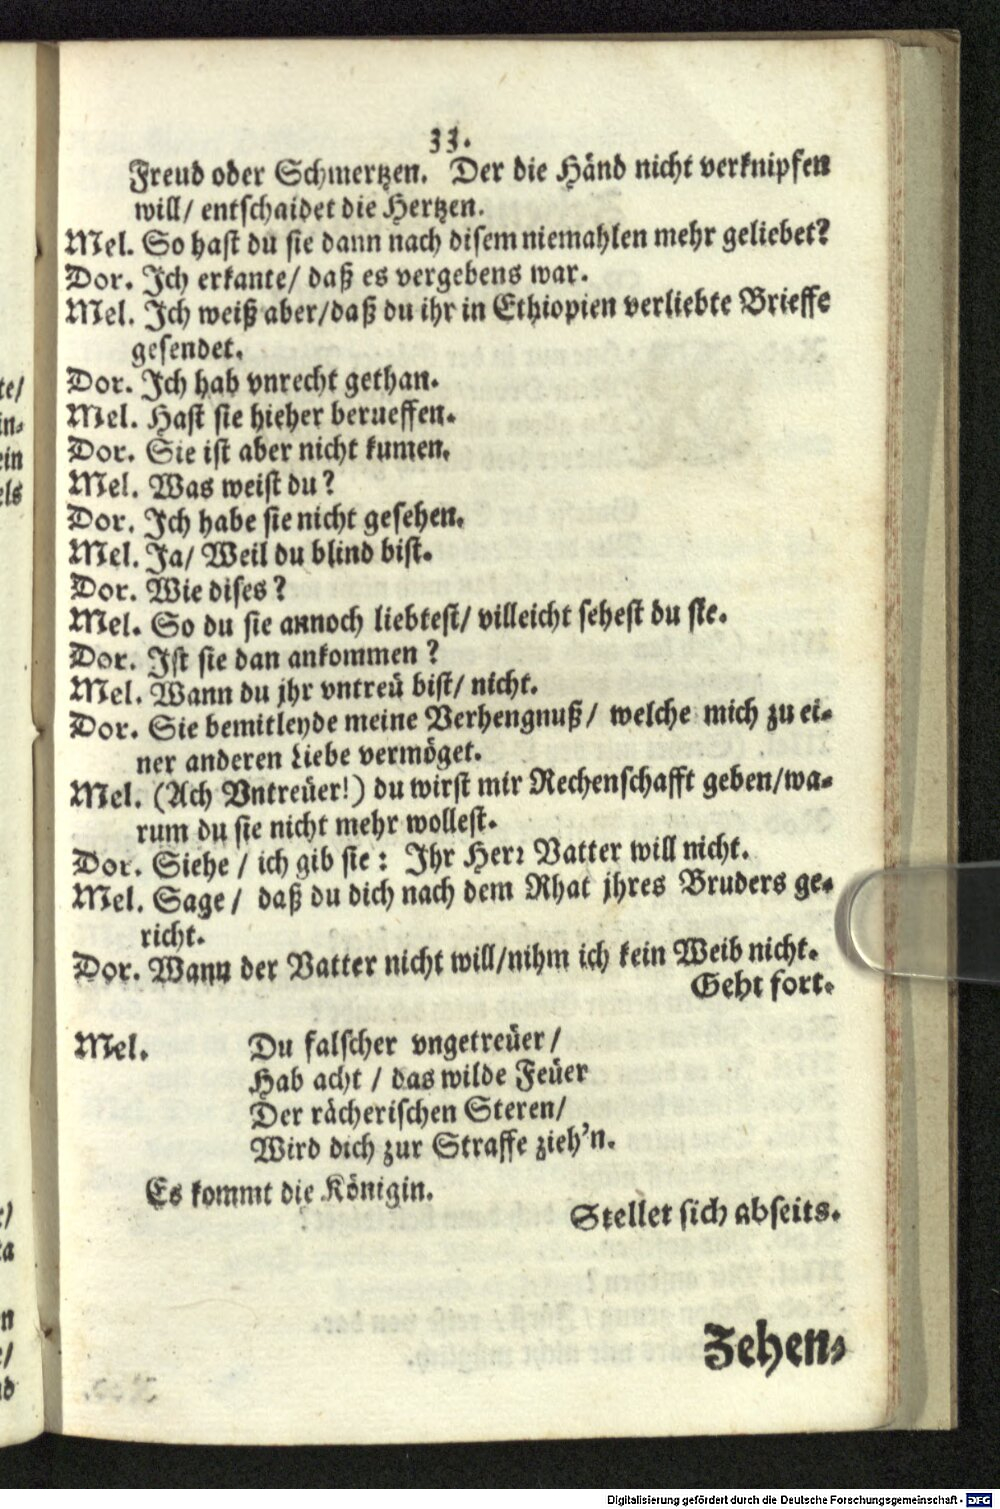 33.
Freud oder Schmertzen. Der die Händ nicht verknipfen
will/ entschaidet die Hertzen.
Mel. So hast du sie dann nach disem niemahlen mehr geliebet?
Dor. Ich erkante/ daß es vergebens war.
Mel. Ich weiß aber/daß du ihr in Ethiopien verliebte Brieffe
gesendet.
Dor. Ich hab vnrecht gethan.
Mel. Hast sie hieher berueffen.
Dor. Sie ist aber nicht kumen.
Mel. Was weist du?
Dor. Ich habe sie nicht gesehen.
Mel. Ja/ Weil du blind bist.
Dor. Wie dises?
Mel. So du sie annoch liebtest/ villeicht sehest du sie.
Dor. Ist sie dan ankommen?
Mel. Wann du jhr vntreü bist/ nicht.
Dor. Sie bemitleyde meine Verhengnuß/ welche mich zu ei-
ner anderen Liebe vermöget.
Mel. (Ach Vntreüer!) du wirst mir Rechenschafft geben/wa-
rum du sie nicht mehr wollest.
Dor. Siehe / ich gib sie: Ihr Herr Vatter will nicht.
Mel. Sage/ daß du dich nach dem Rhat jhres Bruders ge-
richt.
Dor. Wann der Vatter nicht will/nihm ich kein Weib nicht.
Geht fort.
Mel. Du falscher vngetreüer/
Hab acht / das wilde Feüer
Der rächerischen Steren/
Wird dich zur Straffe zieh'n.
Es kommt die Königin.
Stellet sich abseits.
Zehen-
te/
in-
ein
els
ta
n
Digitalisierung gefördert durch die Deutsche Forschungsgemeinschaft - DFG